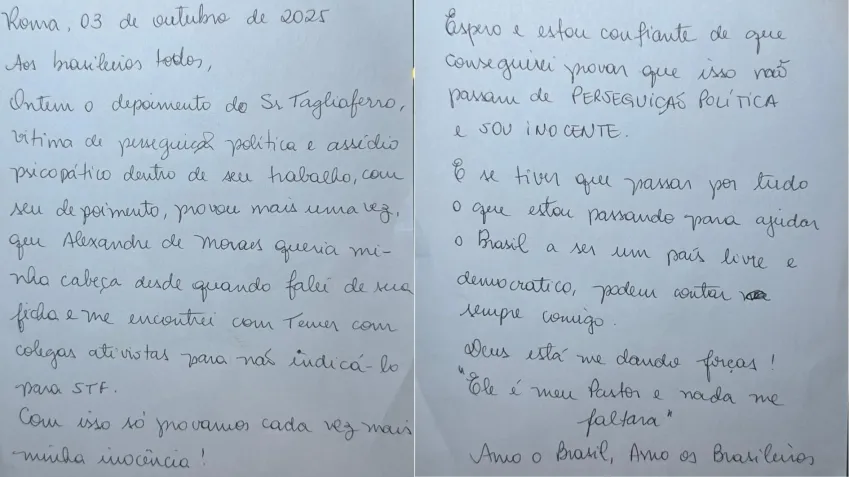 Roma, 03 de outubro de 2025
Aos brasileiros todos,
Ontem o depoimento do Sr Tagliaferro,
vítima de perseguição política e assédio
psicopático dentro de seu trabalho, com
seu depoimento, provou mais uma vez,
que Alexandre de Moraes queria mi-
nha cabeça desde quando falei de sua
ficha e me encontrei com Temer com
colegas ativistas para não indicá-lo
para STF.
Com isso só provamos cada vez mais
minha inocência!
Espero e estou confiante de que
conseguirei provar que isso não
passam de PERSEGUIÇÃO POLÍTICA
e SOU INOCENTE.
E se tiver que passar por tudo
o que estou passando para ajudar
o Brasil a ser um país livre e
democratico, podem contar
sempre comigo.
Deus está me dando forças!
"Ele é meu Pastor e nada me
faltara"
Amo o Brasil, Amo os Brasileiros